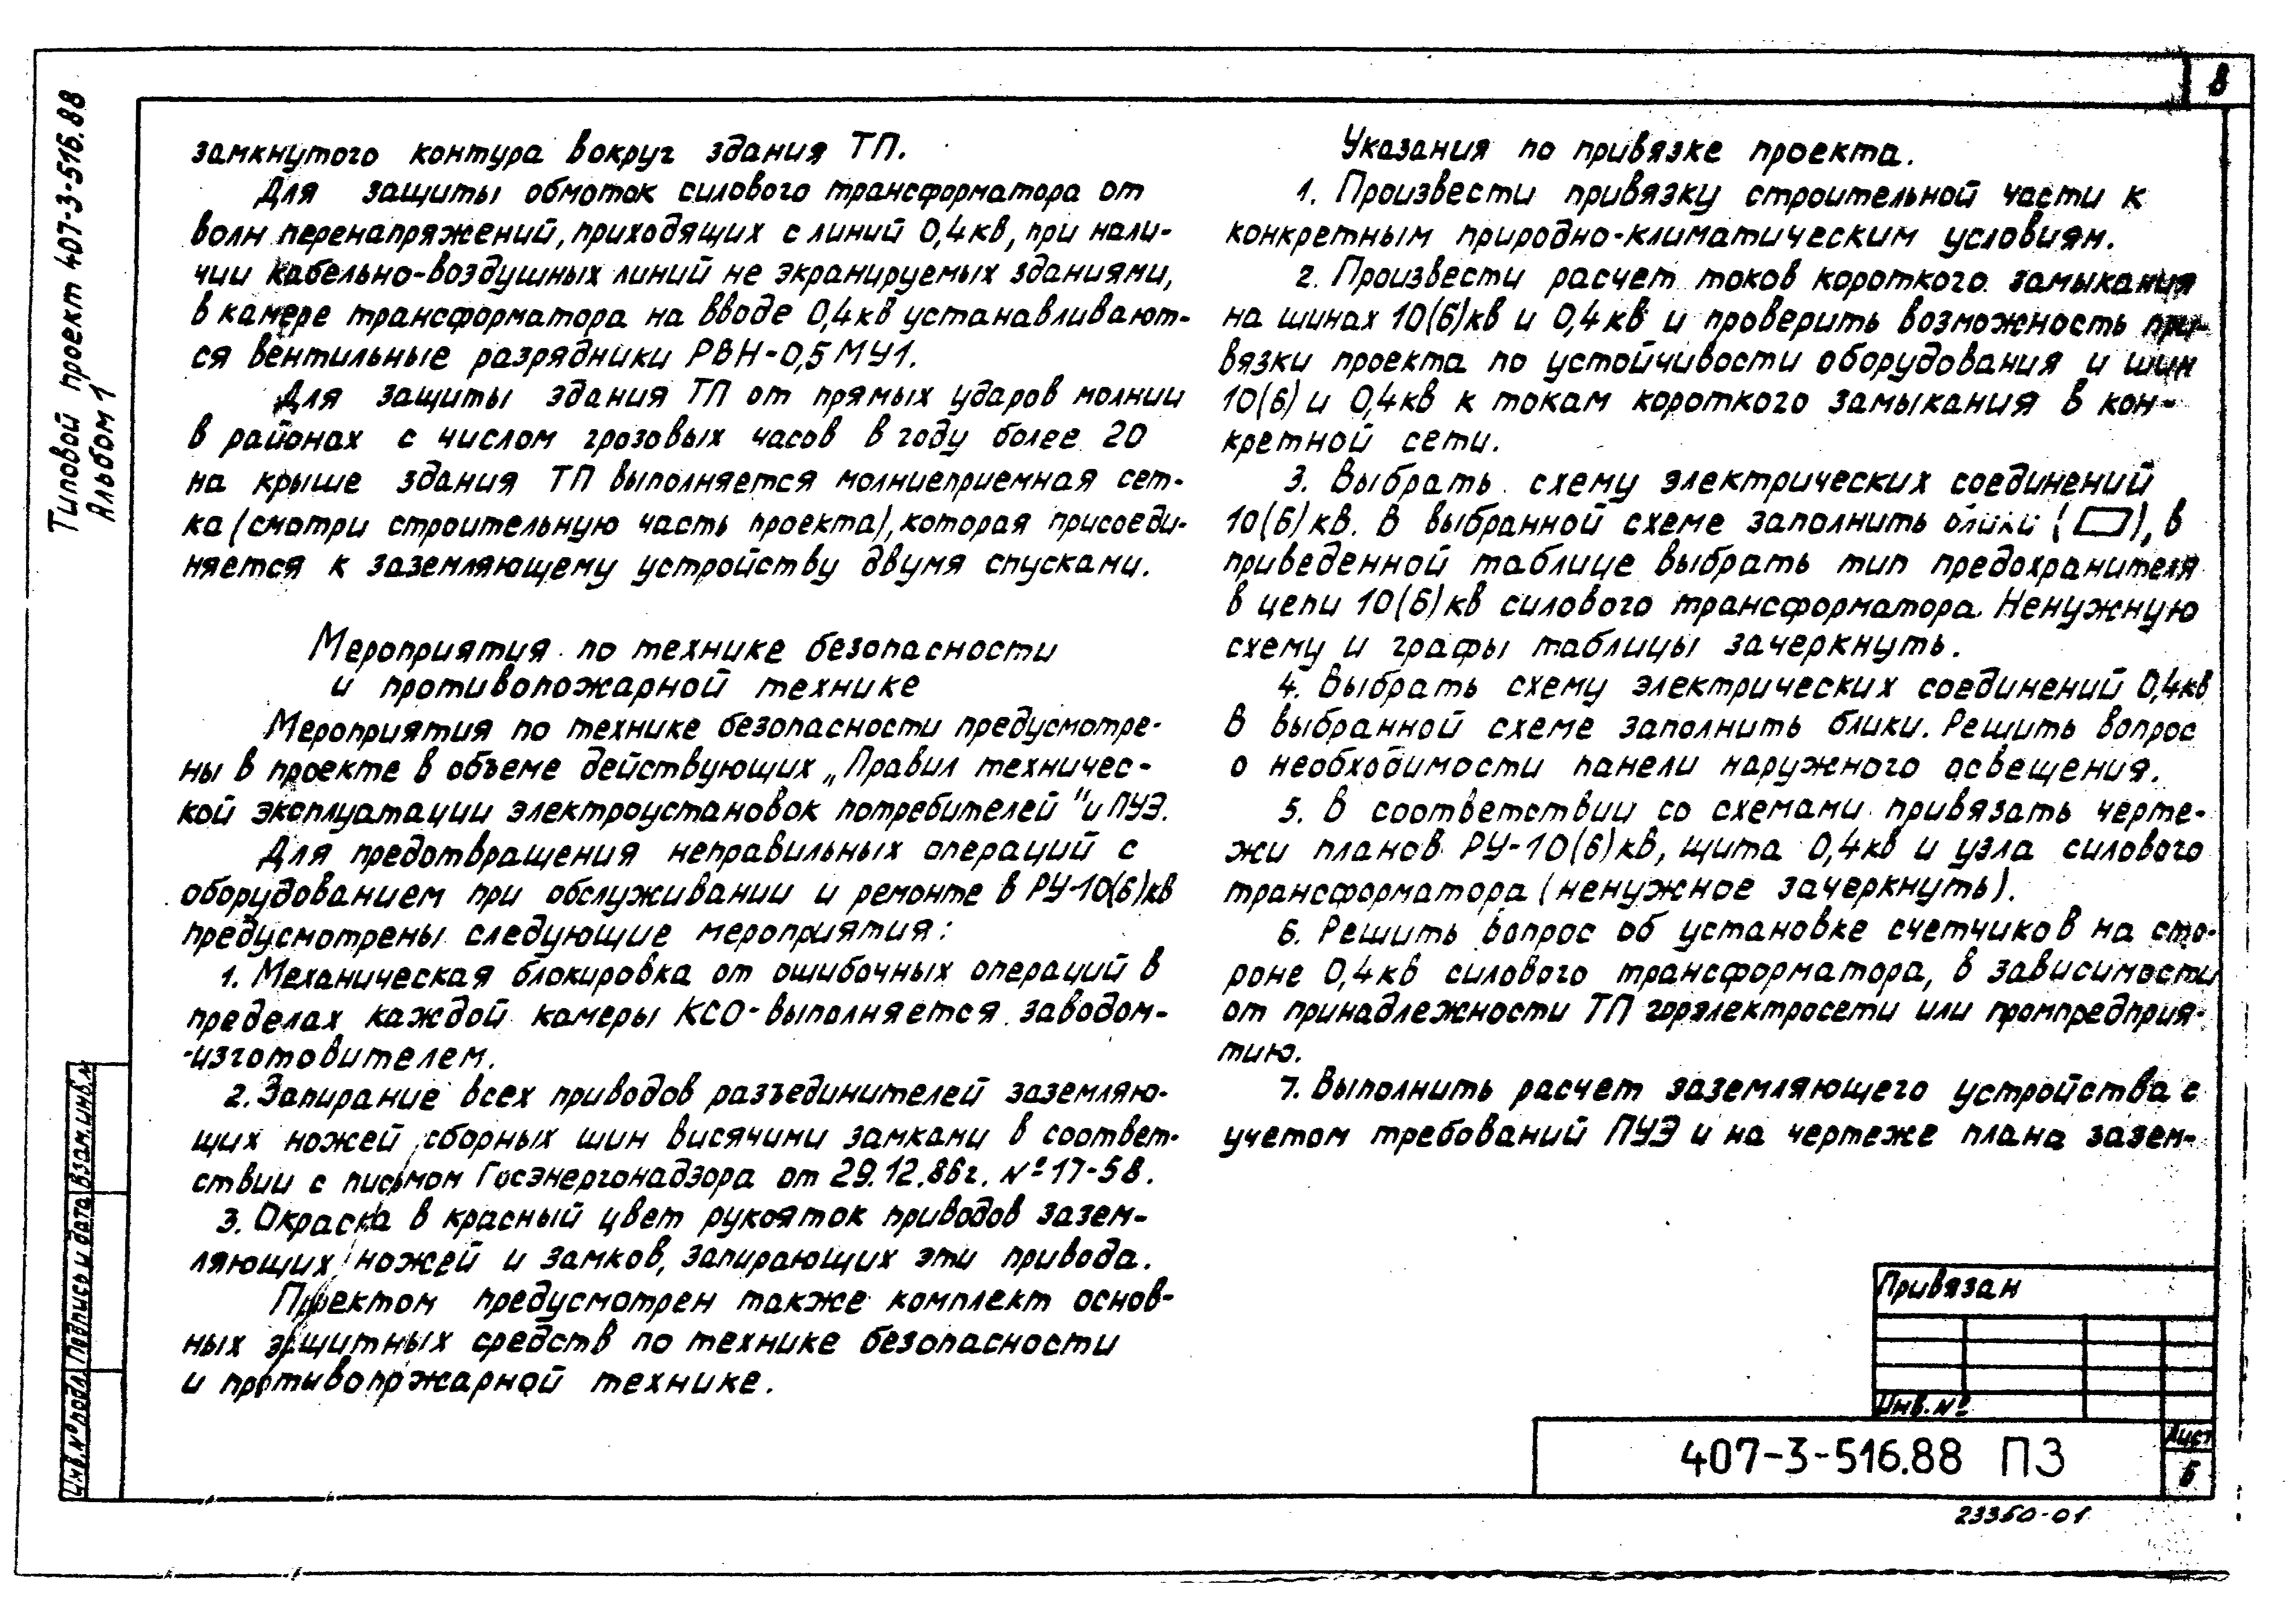 8
Типовой проект 407-3-516.88
Альбом 1
замкнутого контура вокруг здания ТП.
Для защиты обмоток силового трансформатора от
волн перенапряжений, приходящих с линий 0,4кв, при нали-
чии кабельно-воздушных линий не экранируемых зданиями,
в камере трансформатора на вводе 0,4кв устанавливают-
ся вентильные разрядники РВН-0,5МУ1.
Для защиты здания ТП от прямых ударов молнии
в районах с числом грозовых часов в году более 20
на крыше здания ТП выполняется молниеприемная сет-
ка (смотри строительную часть проекта), которая присоеди-
няется к заземляющему устройству двумя спусками.
Мероприятия по технике безопасности
и противопожарной технике
Мероприятия по технике безопасности предусмотре-
ны в проекте в объеме действующих „Правил техничес-
кой эксплуатации электроустановок потребителей" и ПУЭ.
Для предотвращения неправильных операций с
оборудованием при обслуживании и ремонте в РУ-10(6)кв
предусмотрены следующие мероприятия:
1. Механическая блокировка от ошибочных операций в
пределах каждой камеры КСО-выполняется заводом-
-изготовителем.
2. Запирание всех приводов разъединителей заземляю-
щих ножей сборных шин висячими замками в соответ-
ствии с письмом Госэнергонадзора от 29.12.86г. №17-58.
3. Окраска в красный цвет рукояток приводов зазем-
ляющих ножей и замков, запирающих эти привода.
Проектом предусмотрен также комплект основ-
ных защитных средств по технике безопасности
и противопожарной технике.
Указания по привязке проекта.
1. Произвести привязку строительной части к
конкретным природно-климатическим условиям.
2. Произвести расчет токов короткого замыкания
на шинах 10(6)кв и 0,4кв и проверить возможность при-
вязки проекта по устойчивости оборудования и шин
10(6) и 0,4кв к токам короткого замыкания в кон-
кретной сети.
3. Выбрать схему электрических соединений
10(6)кв. В выбранной схеме заполнить блики ( ▭ ), в
приведенной таблице выбрать тип предохранителя
в цепи 10(6)кв силового трансформатора. Ненужную
схему и графы таблицы зачеркнуть.
4. Выбрать схему электрических соединений 0,4кв
В выбранной схеме заполнить блики. Решить вопрос
о необходимости панели наружного освещения.
5. В соответствии со схемами привязать черте-
жи планов РУ-10(6)кв, щита 0,4кв и узла силового
трансформатора (ненужное зачеркнуть).
6. Решить вопрос об установке счетчиков на сто-
роне 0,4кв силового трансформатора, в зависимости
от принадлежности ТП горэлектросети или промпредприя-
тию.
7. Выполнить расчет заземляющего устройства с
учетом требований ПУЭ и на чертеже плана зазем-
Привязан
Инв.№
407-3-516.88 ПЗ
Лист
6
23350-01
Взам.инв.№
Подпись и дата
Инв.№подл.